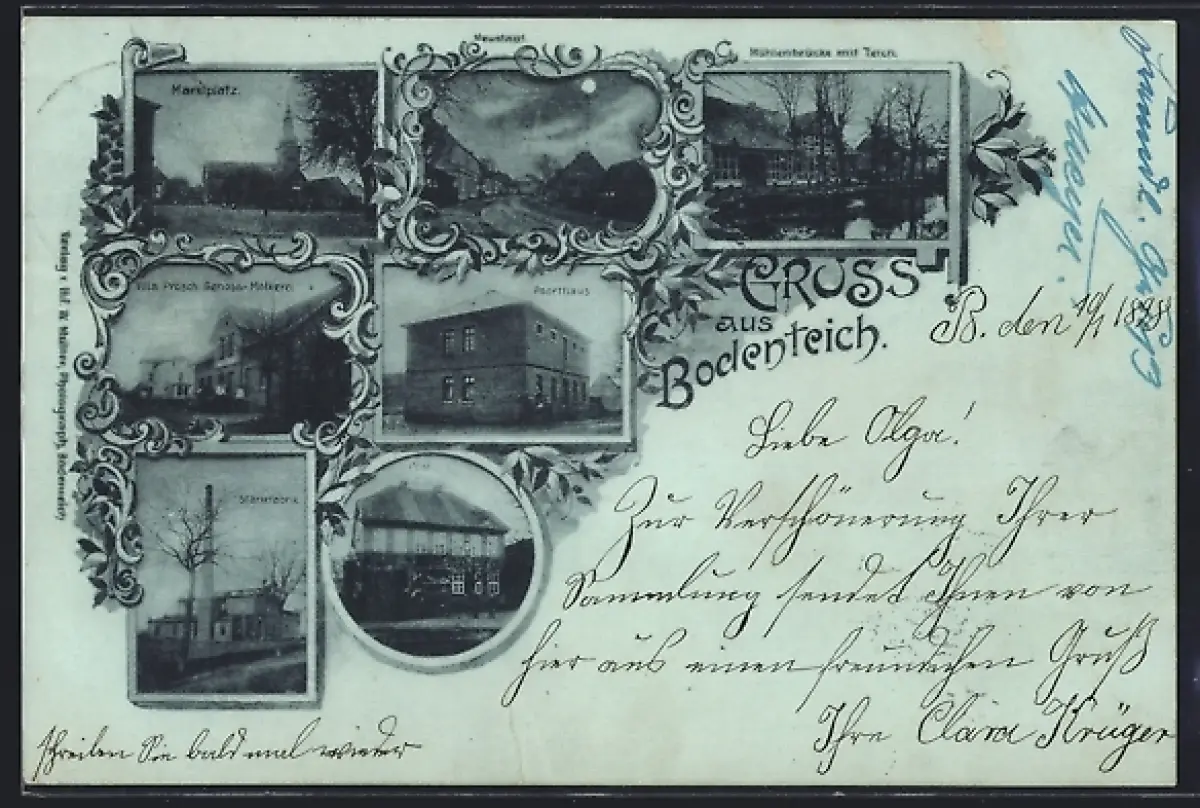 Neustadt.
Mühlenbrücke mit Teich.
Marktplatz.
Villa Prösch Genoss.-Molkerei
Posthaus
GRUSS
aus
Bodenteich.
Stärkefabrik
Freundl. Gruß
B. den 10/1 1898
Liebe Olga!
Zur Verschönerung Ihrer
Sammlung sendet Ihnen von
hier aus einen freundlichen Gruß
Ihre Clara Krüger
schreiben Sie bald mal wieder